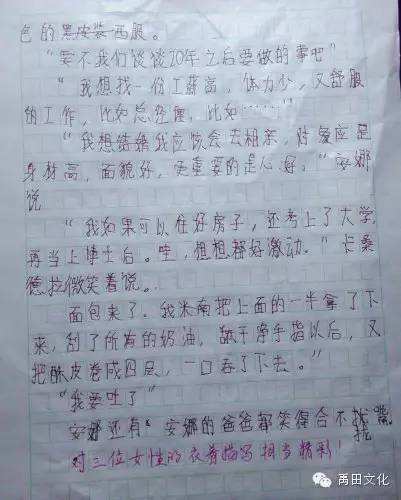 色的黑皮装西服。
“要不我们谈谈20年之后要做的事吧”
“我想找一份工薪高，体力少，又舒服
的工作，比如总经理，比如……”
“我想结婚我应该会去相亲，对象应是
身材高，面貌好，更重要的是心好，”安娜
说
“我如果可以住好房子，还考上了大学，
再当上博士后。哇，想想都好激动。”卡桑
德拉微笑着说。
面包来了。我米南把上面的一半拿了下
来，刮了所有的奶油，舔干净手指以后，又
把酥皮卷成四层，一口吞了下去。”
“我要吐了”
安娜还有“安娜的爸爸都笑得合不拢嘴。
拢
对三位女性的衣着描写相当精彩！
禹田文化